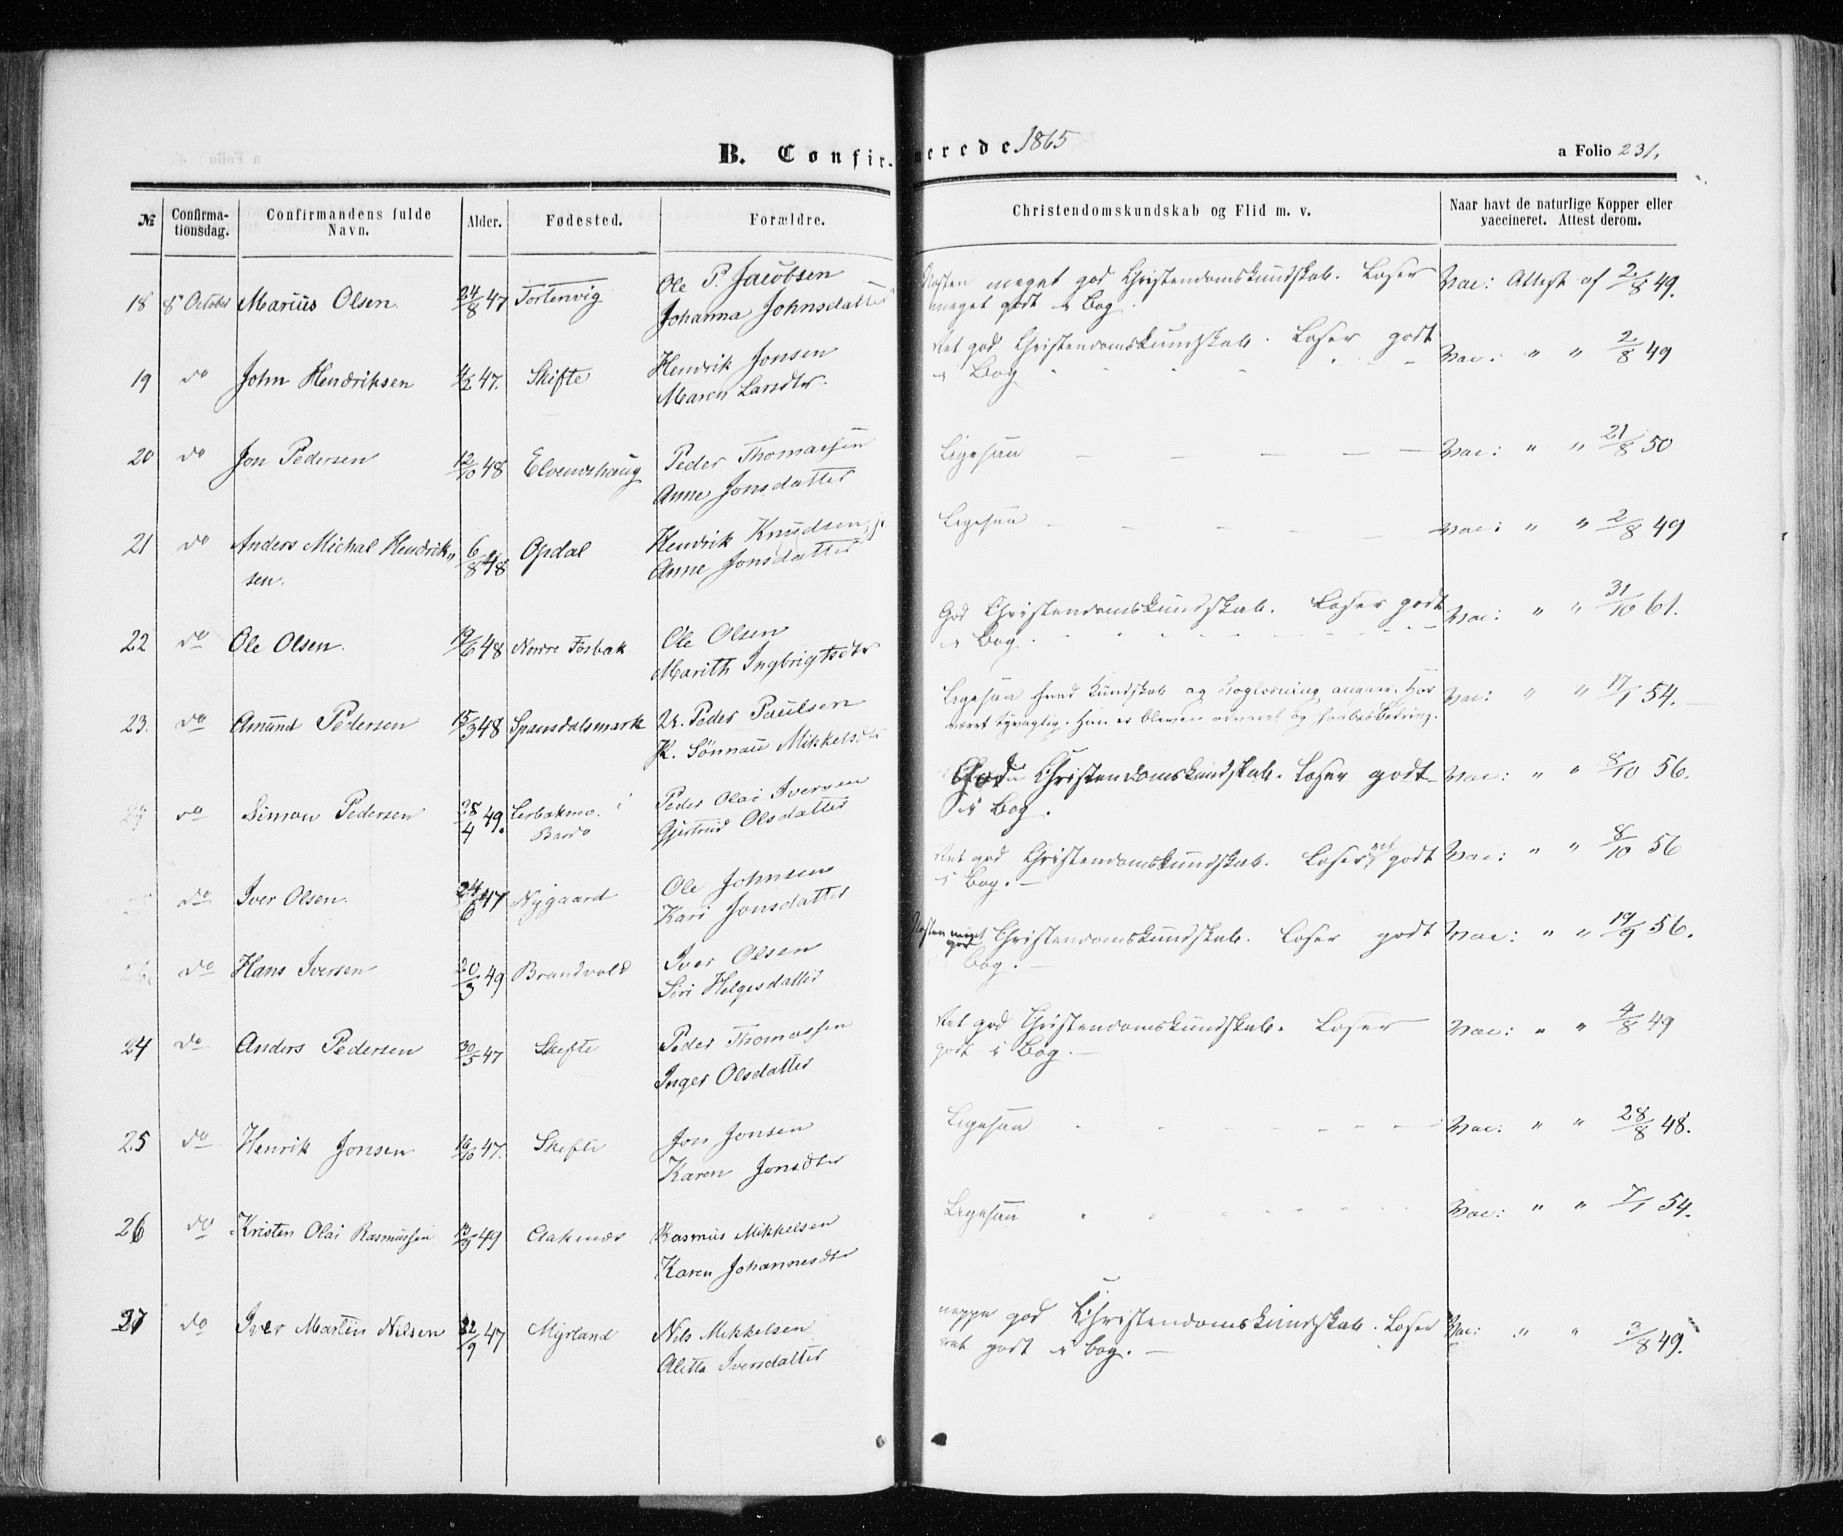 B. Confirmerede 1865
a Folio 231.
№ Confirma-tionsdag. Confirmandens fulde Navn. Alder. Fødested. Forældre. Christendomskundskab og Flid m. v. Naar havt de naturlige Kopper eller vaccineret. Attest derom.
18 8de October Marius Olsen. 24/8 47 Ole P. Jacobsen Johanna Johnsdatter Næsten meget god Christendomskundskab. Læser meget godt i Bog Vac: Attest af 2/8 49.
19 do John Hendriksen 47. Skifte Hendrik Jonsen Maren Larsdtr. Ret god Christendomskundskab. Læser godt i Bog Vac: " " 2/8 49
20 do Jon Pedersen 12/10 48 Elvenæshaug Peder Thomassen Anne Jonsdatter Ligesaa — — — — — Vac: " " 21/8 50
21 do Anders Michal Hendrik-
sen. 6/8 48 Opdal Hendrik Knudsen Anne Jonsdatter Ligesaa — — — — Vac: " " 2/8 49
22 do Ole Olsen. 19/6 48 Nordre Fosbak Ole Olsen Marith Ingbrigtsdtr God Christendomskundskab. Læser godt i Bog. Vac: " " 31/10 61.
23. do Amund Pedersen 15/3 48 Spansdalsmark U. Peder Paulsen P. Sönnau Mikkelsdtr Ligesaa hvad Kundskab og Boglæsning angaar. Har været Han er bleven advaret og Vac: " " 17/1 54.
do Simon Pedersen 28/4 49. i Bardo Peder Olai Iversen Gjertrud Olsdatter God Christendomskundskab. Læser godt i Bog. Vac: " " 8/10 56.
do Iver Olsen. 24/6 47 Nygaard Ole Johnsen Kari Jonsdatter Ret god Christendomskundskab. Læser ret godt i Bog. — Vac: " " 8/10 56
do Hans Iversen 20/3 49 Brandvold Iver Olsen Siri Helgesdatter Næsten meget god Christendomskundskab. Læser godt i Bog. — Vac: " " 19/9 56.
24 do Anders Pedersen 30/5 47 Skifte Peder Thomassen Inger Olsdatter Ret god Christendomskundskab. Læser godt i Bog. — Vac: " " 4/8 49
25 do Henrik Jonsen 16/10 47. Skifte Jon Jonsen Karen Jonsdtr Ligesaa Vac: " " 28/8 48.
26 do Kristen Olai Rasmussen 13/9 49 Rasmus Mikkelsen Karen Johannesdtr Ligesaa Vac: " " 7/1 54.
27 do Iver Martin Nilsen 22/9 47 Myrland Nils Mikkelsen Aletta Iversdatter neppe god Christendomskundskab. Læser ret godt i Bog. — Vac: " " 3/8 49.